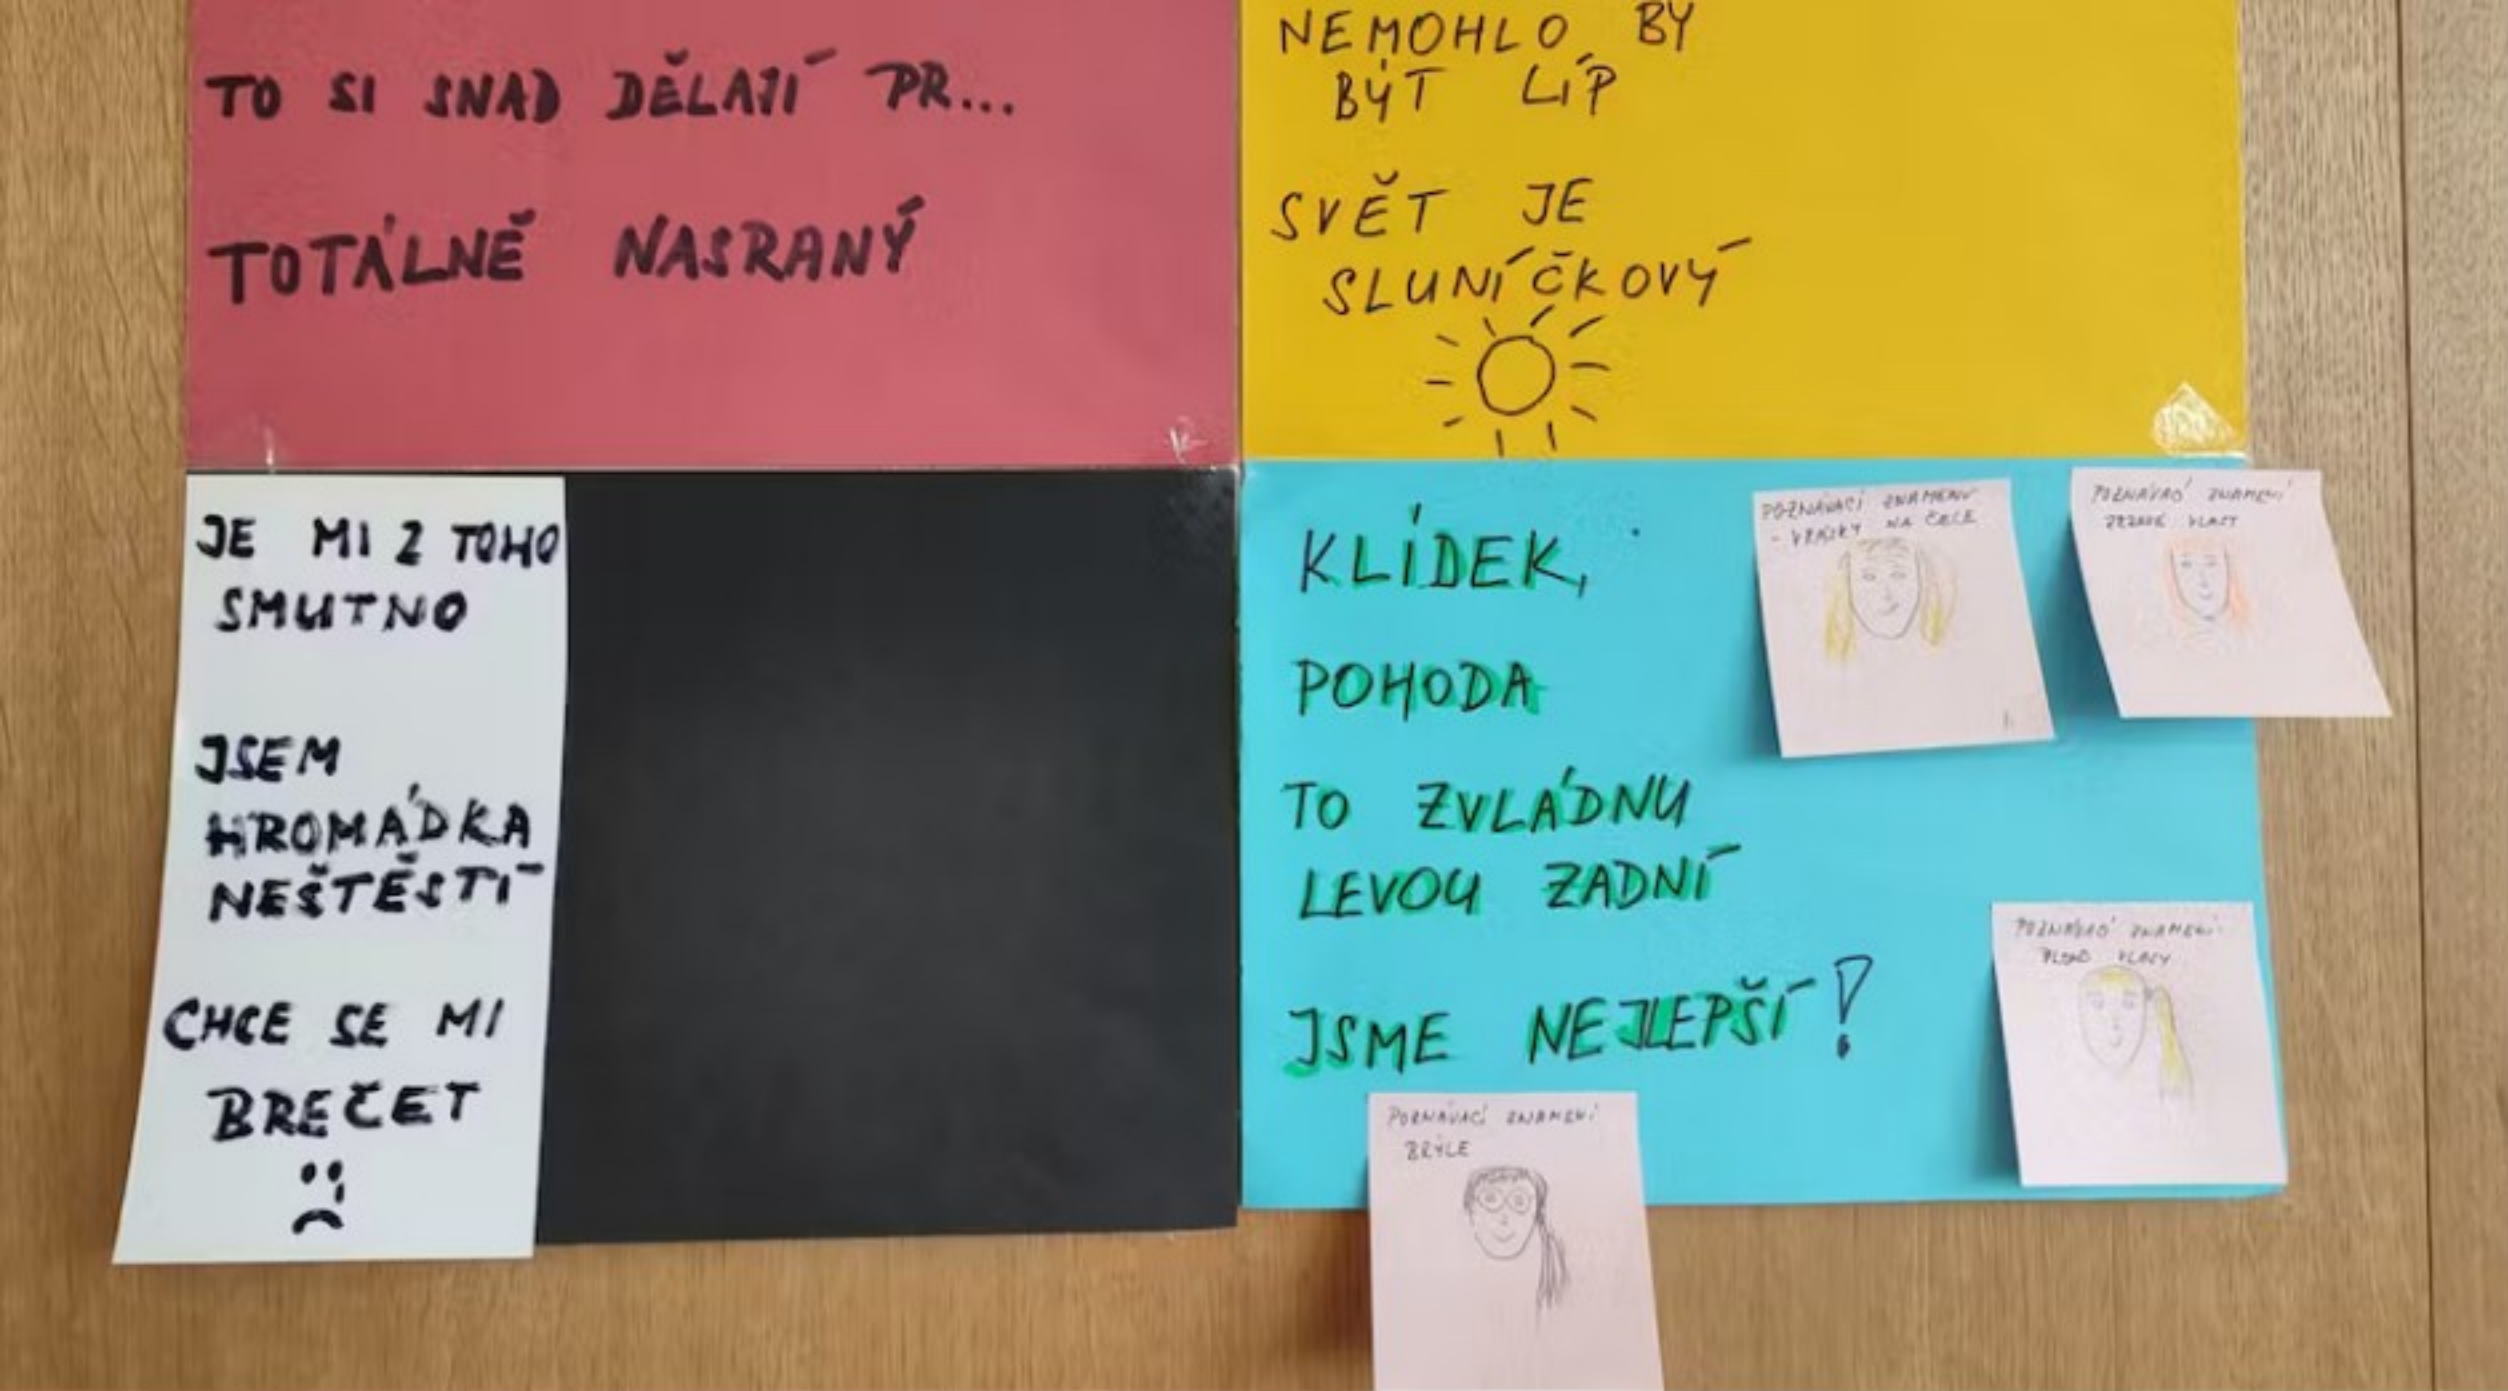 TO SI SNAD DĚLAJÍ PR...
TOTÁLNĚ NASRANÝ
NEMOHLO BY
BÝT LÍP
SVĚT JE
SLUNÍČKOVÝ
JE MI Z TOHO
SMUTNO
JSEM
HROMÁDKA
NEŠTĚSTÍ
CHCE SE MI
BREČET
KLÍDEK,
POHODA
TO ZVLÁDNU
LEVOU ZADNÍ
JSME NEJLEPŠÍ!
POZNÁVACÍ ZNAMENÍ
- VRÁSKY NA ČELE
POZNÁVACÍ ZNAMENÍ
VLASY
POZNÁVACÍ ZNAMENÍ:
BLOND VLASY
POZNÁVACÍ ZNAMENÍ
BRÝLE